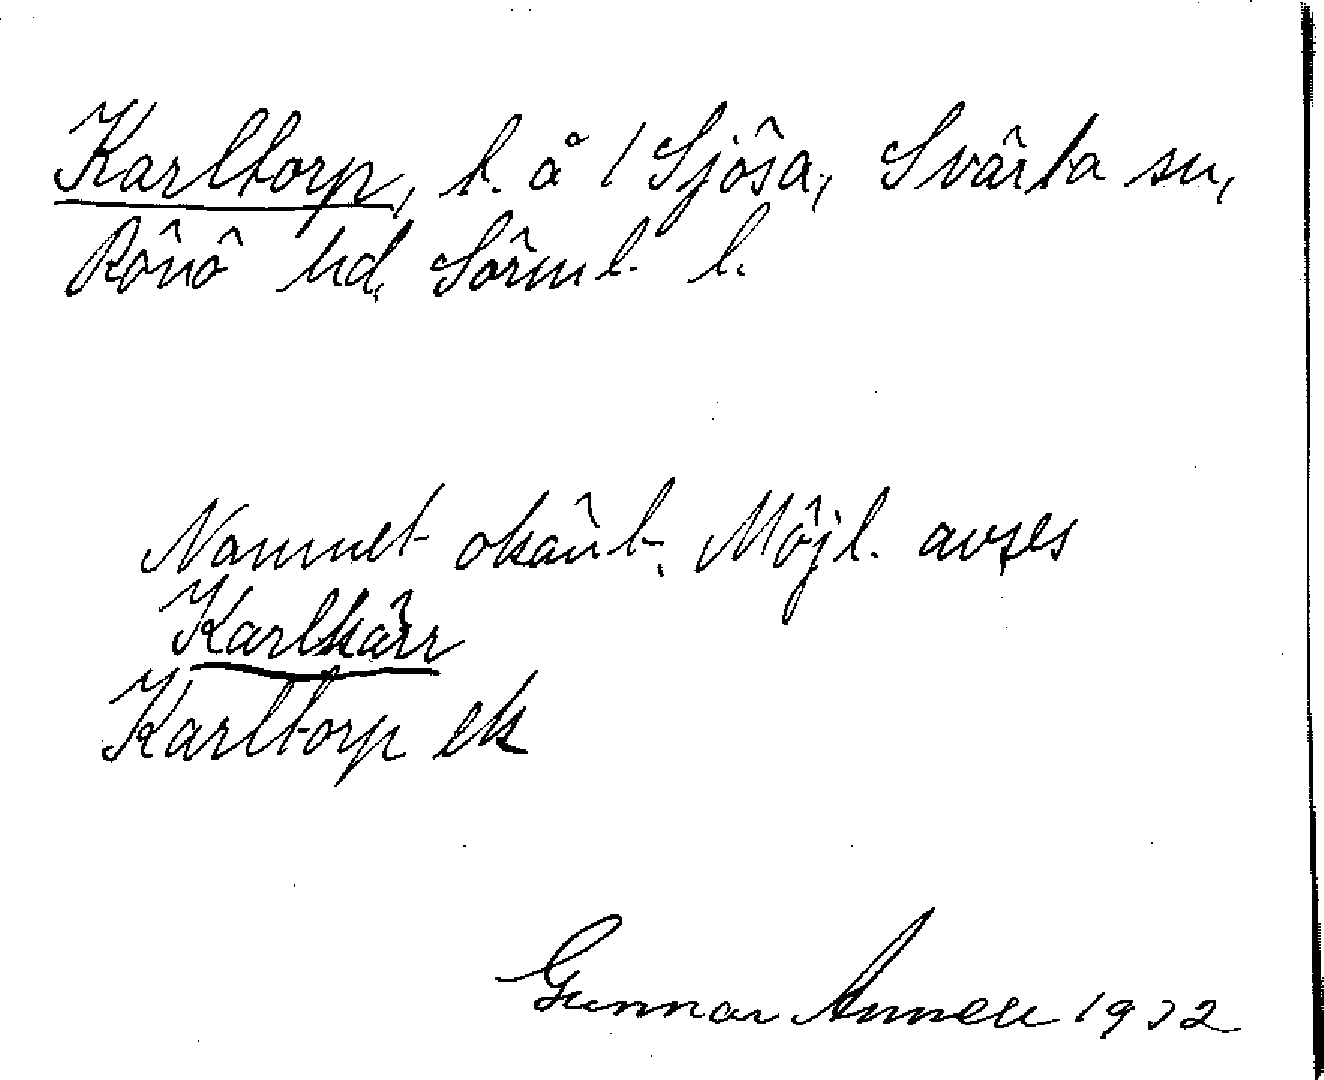 Karltorp, t. å / Sjösa, Svärta sn,
Rönö hd, Södml. l.
Namnet okänt. Möjl. avses
Karlkärr
Karltorp ek
Gunnar Annell 1932